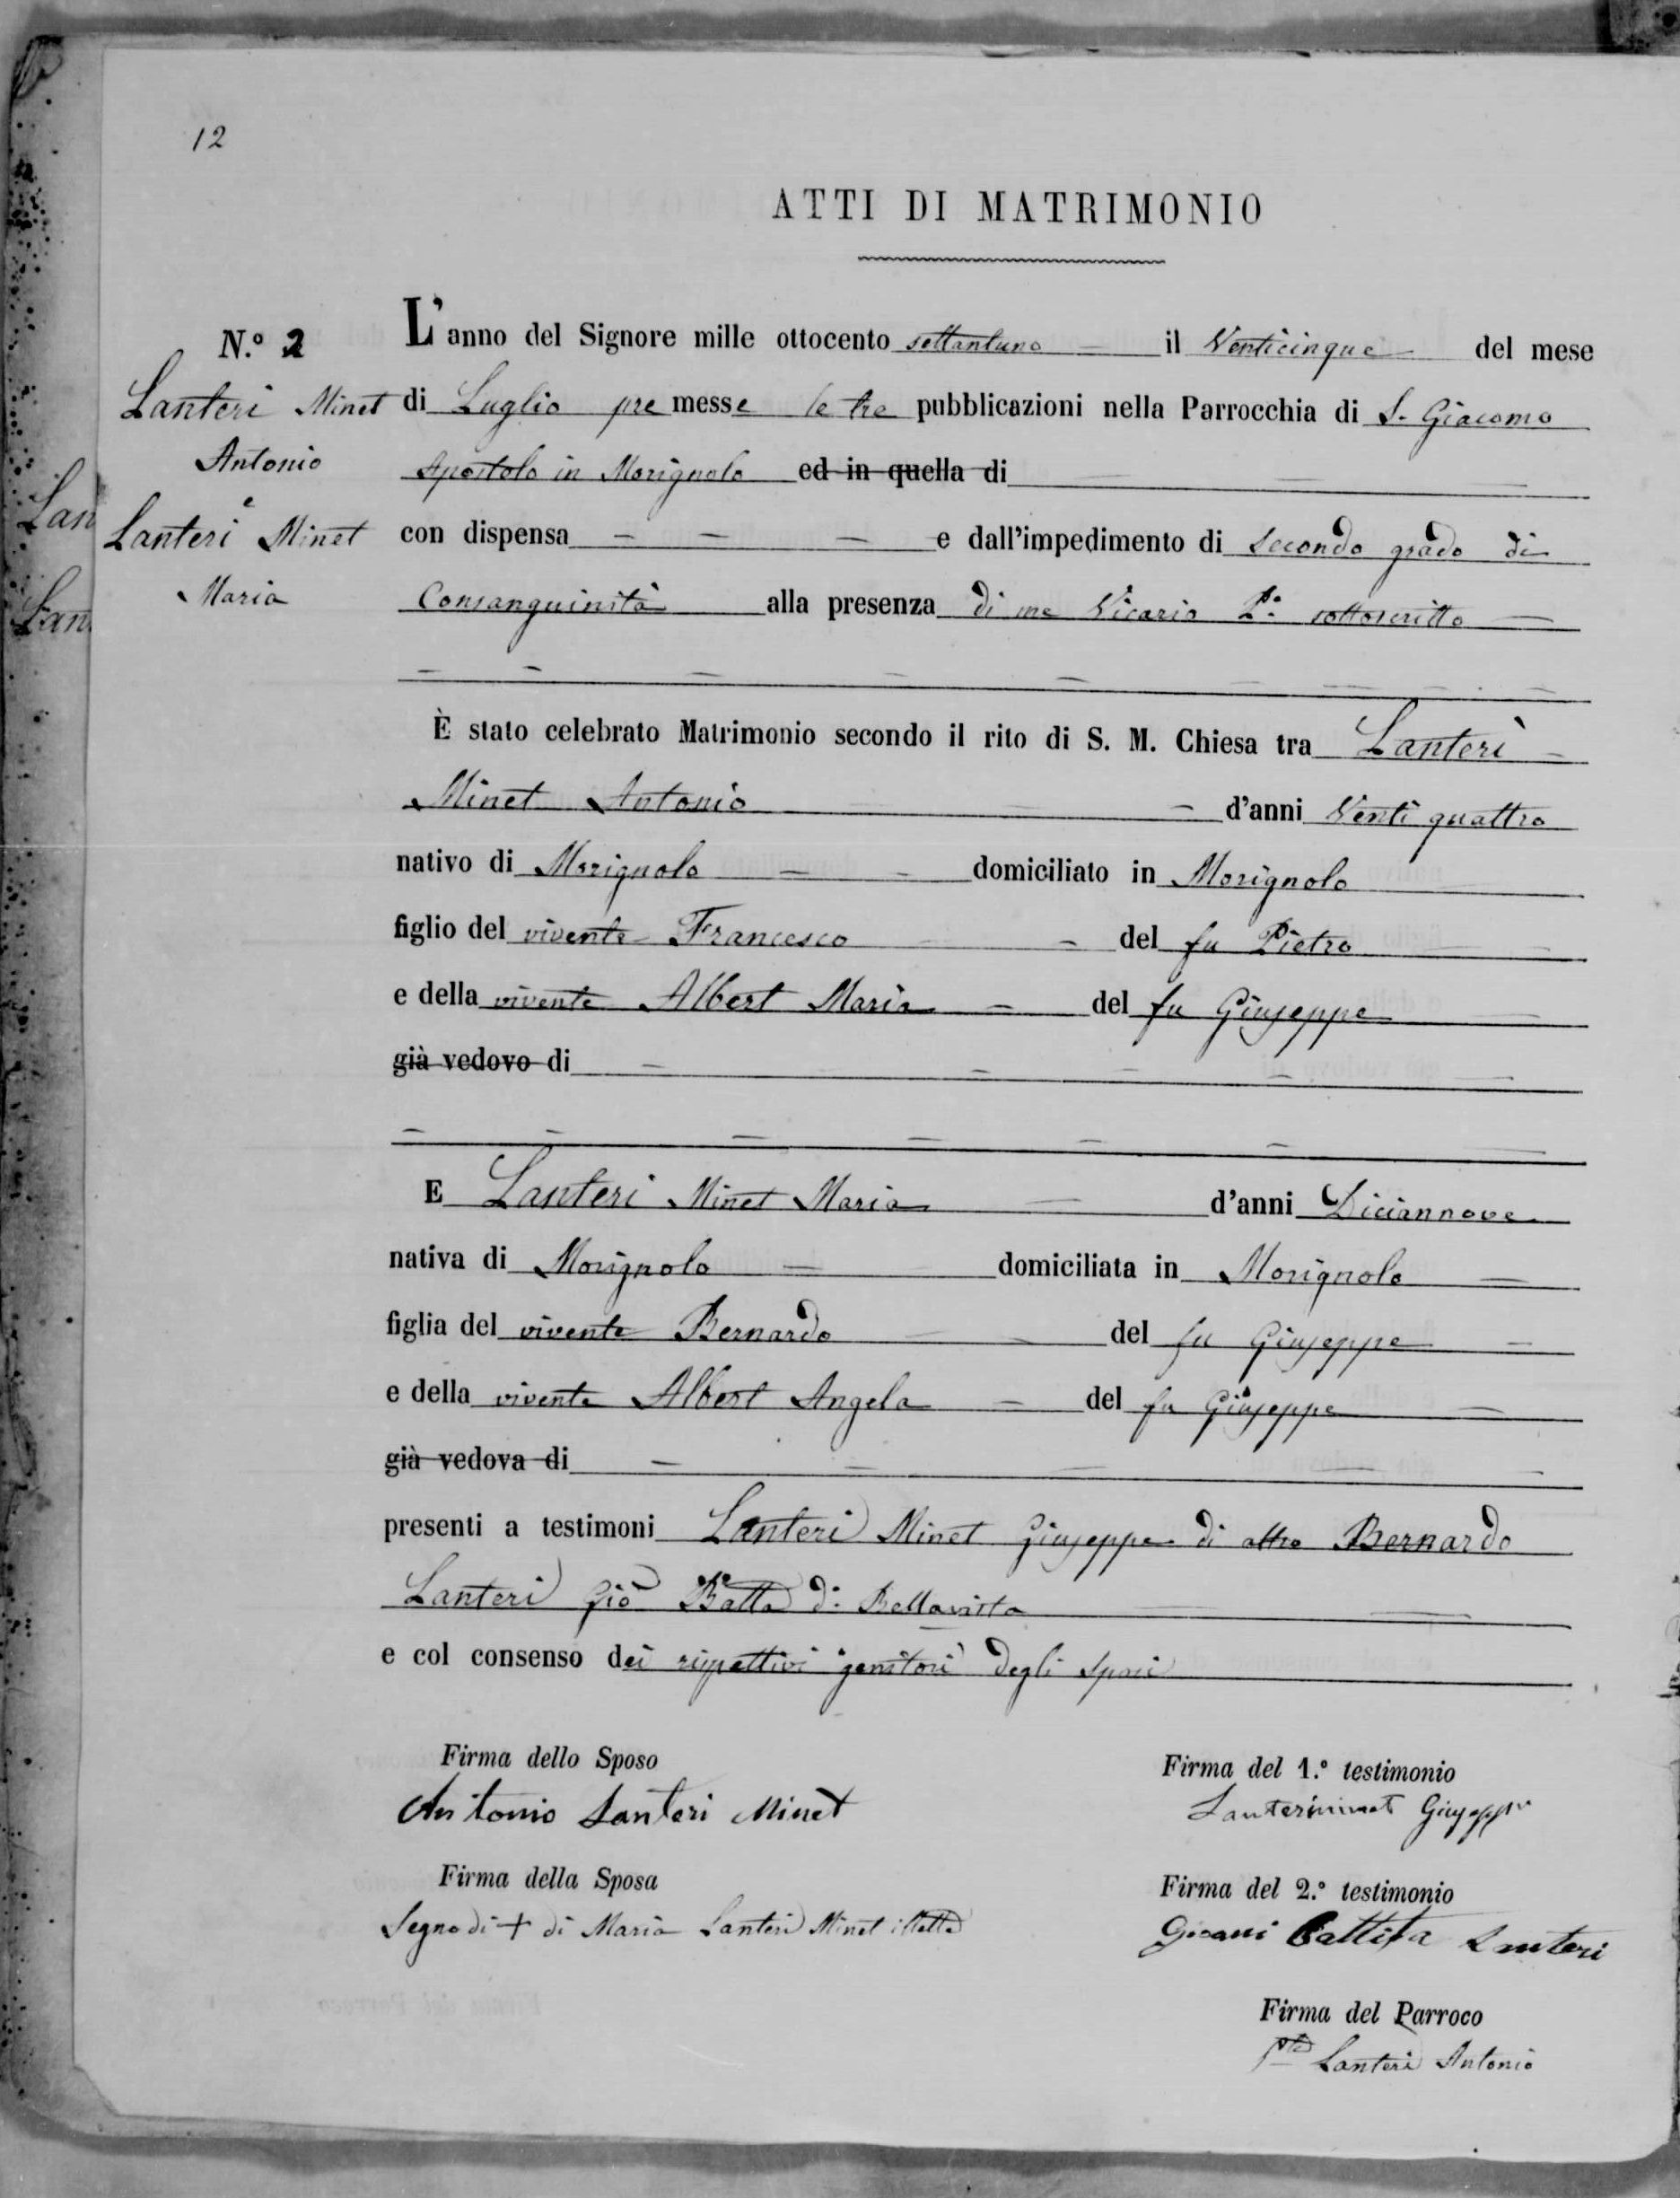 12
ATTI DI MATRIMONIO
N.º 2
Lanteri Minet
Antonio
e
Lanteri Minet
Maria
Lan
Lan
L'anno del Signore mille ottocento settantuno il Venticinque del mese
di Luglio premesse le tre pubblicazioni nella Parrocchia di S. Giacomo
Apostolo in Morignolo ed in quella di
con dispensa e dall'impedimento di secondo grado di
Consanguinità alla presenza di me Vicario sottoscritto
È stato celebrato Matrimonio secondo il rito di S. M. Chiesa tra Lanteri
Minet Antonio d'anni Venti quattro
nativo di Morignolo domiciliato in Morignolo
figlio del vivente Francesco del fu Pietro
e della vivente Albert Maria del fu Giuseppe
già vedovo di
E Lanteri Minet Maria d'anni Diciannove
nativa di Morignolo domiciliata in Morignolo
figlia del vivente Bernardo del fu Giuseppe
e della vivente Albert Angela del fu Giuseppe
già vedova di
presenti a testimoni Lanteri Minet Giuseppe di altro Bernardo
Lanteri Gio Batta di Bellavista
e col consenso dei rispettivi genitori degli sposi
Firma dello Sposo
Antonio Lanteri Minet
Firma della Sposa
Segno di + di Maria Lanteri Minet illetta
Firma del 1.º testimonio
Lanteriminet Giuseppe
Firma del 2.º testimonio
Gioani Battita Lanteri
Firma del Parroco
Lanteri Antonio